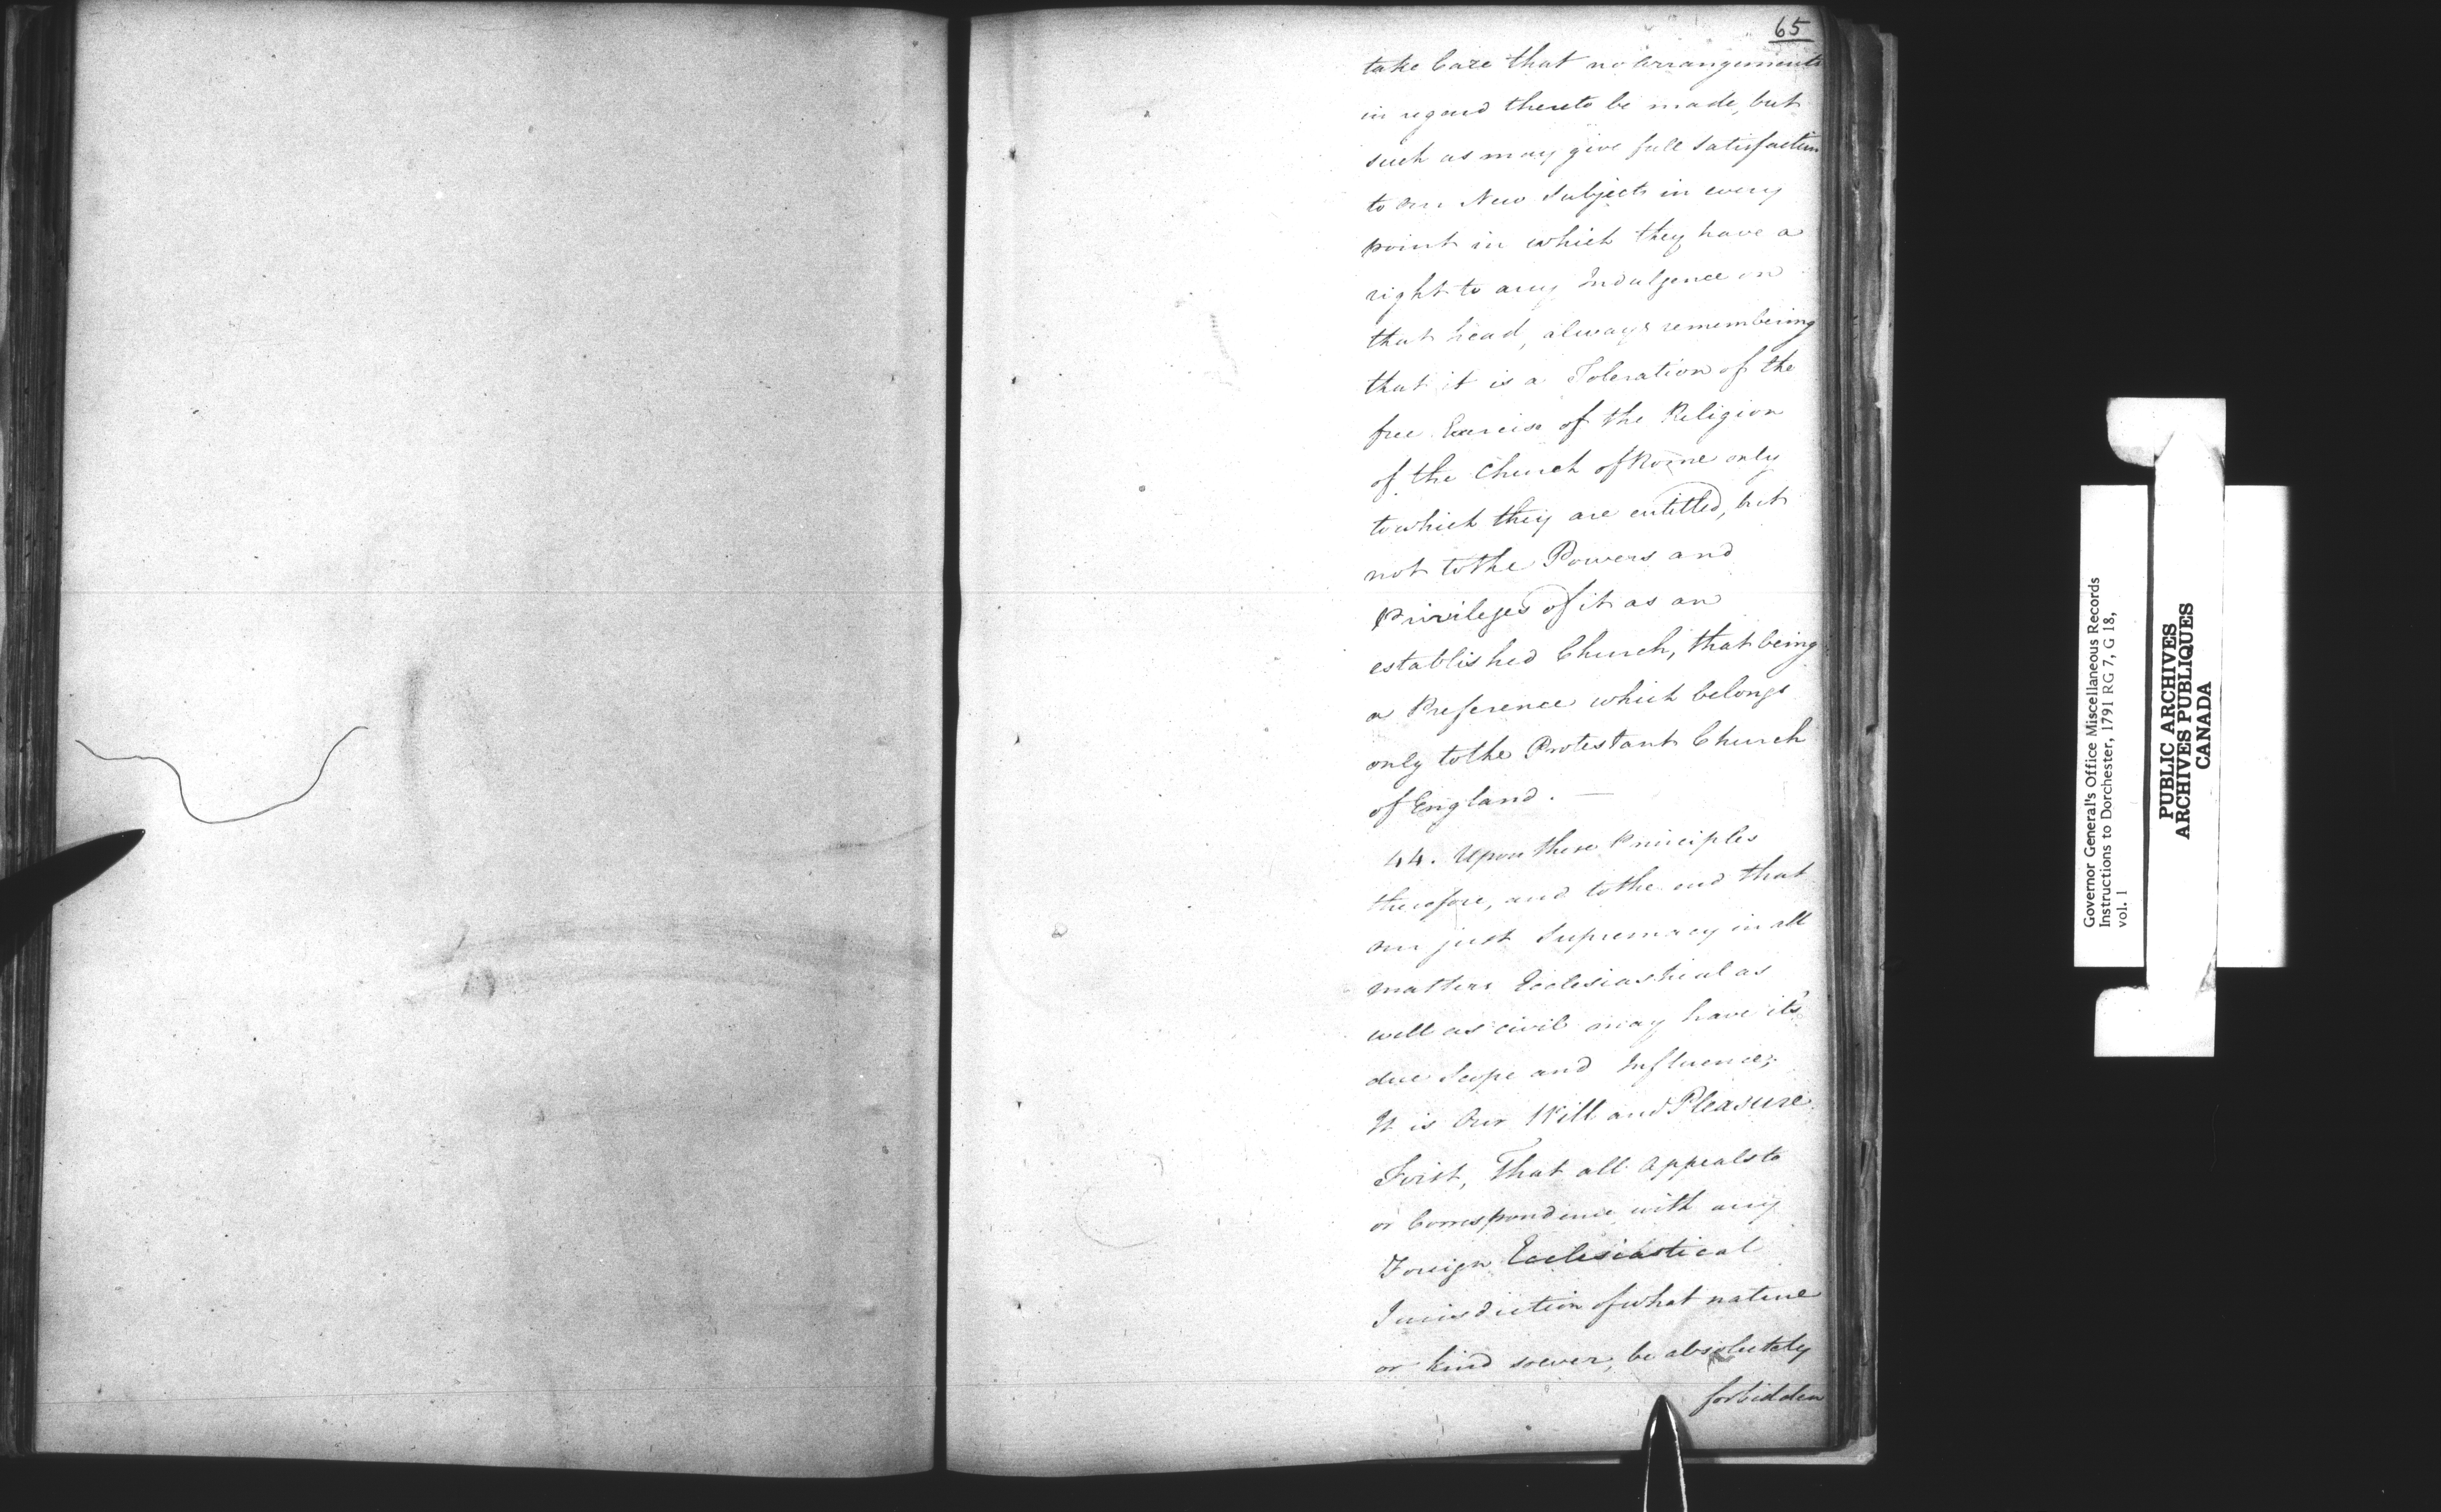 65
take Care that no arrangements
in regard thereto be made, but
such as may give full Satisfaction
to our New Subjects in every
point in which they have a
right to any Indulgence on
that head, always remembering
that it is a Toleration of the
free Exercise of the Religion
of the Church of Rome only
to which they are entitled, but
not to the Powers and
Privileges of it as an
established Church, that being
a Preference which belongs
only to the Protestant Church
of England. —
44. Upon these Principles
therefore, and to the end that
our just Supremacy in all
matters Ecclesiastical as
well as civil may have its
due Scope and Influence;
It is Our Will and Pleasure,
First, That all appeals to
or Correspondence with any
Foreign Ecclesiastical
Jurisdiction of what nature
or kind soever, be absolutely
forbidden
Governor General's Office Miscellaneous Records
Instructions to Dorchester, 1791 RG 7, G 18,
vol. 1
PUBLIC ARCHIVES
ARCHIVES PUBLIQUES
CANADA